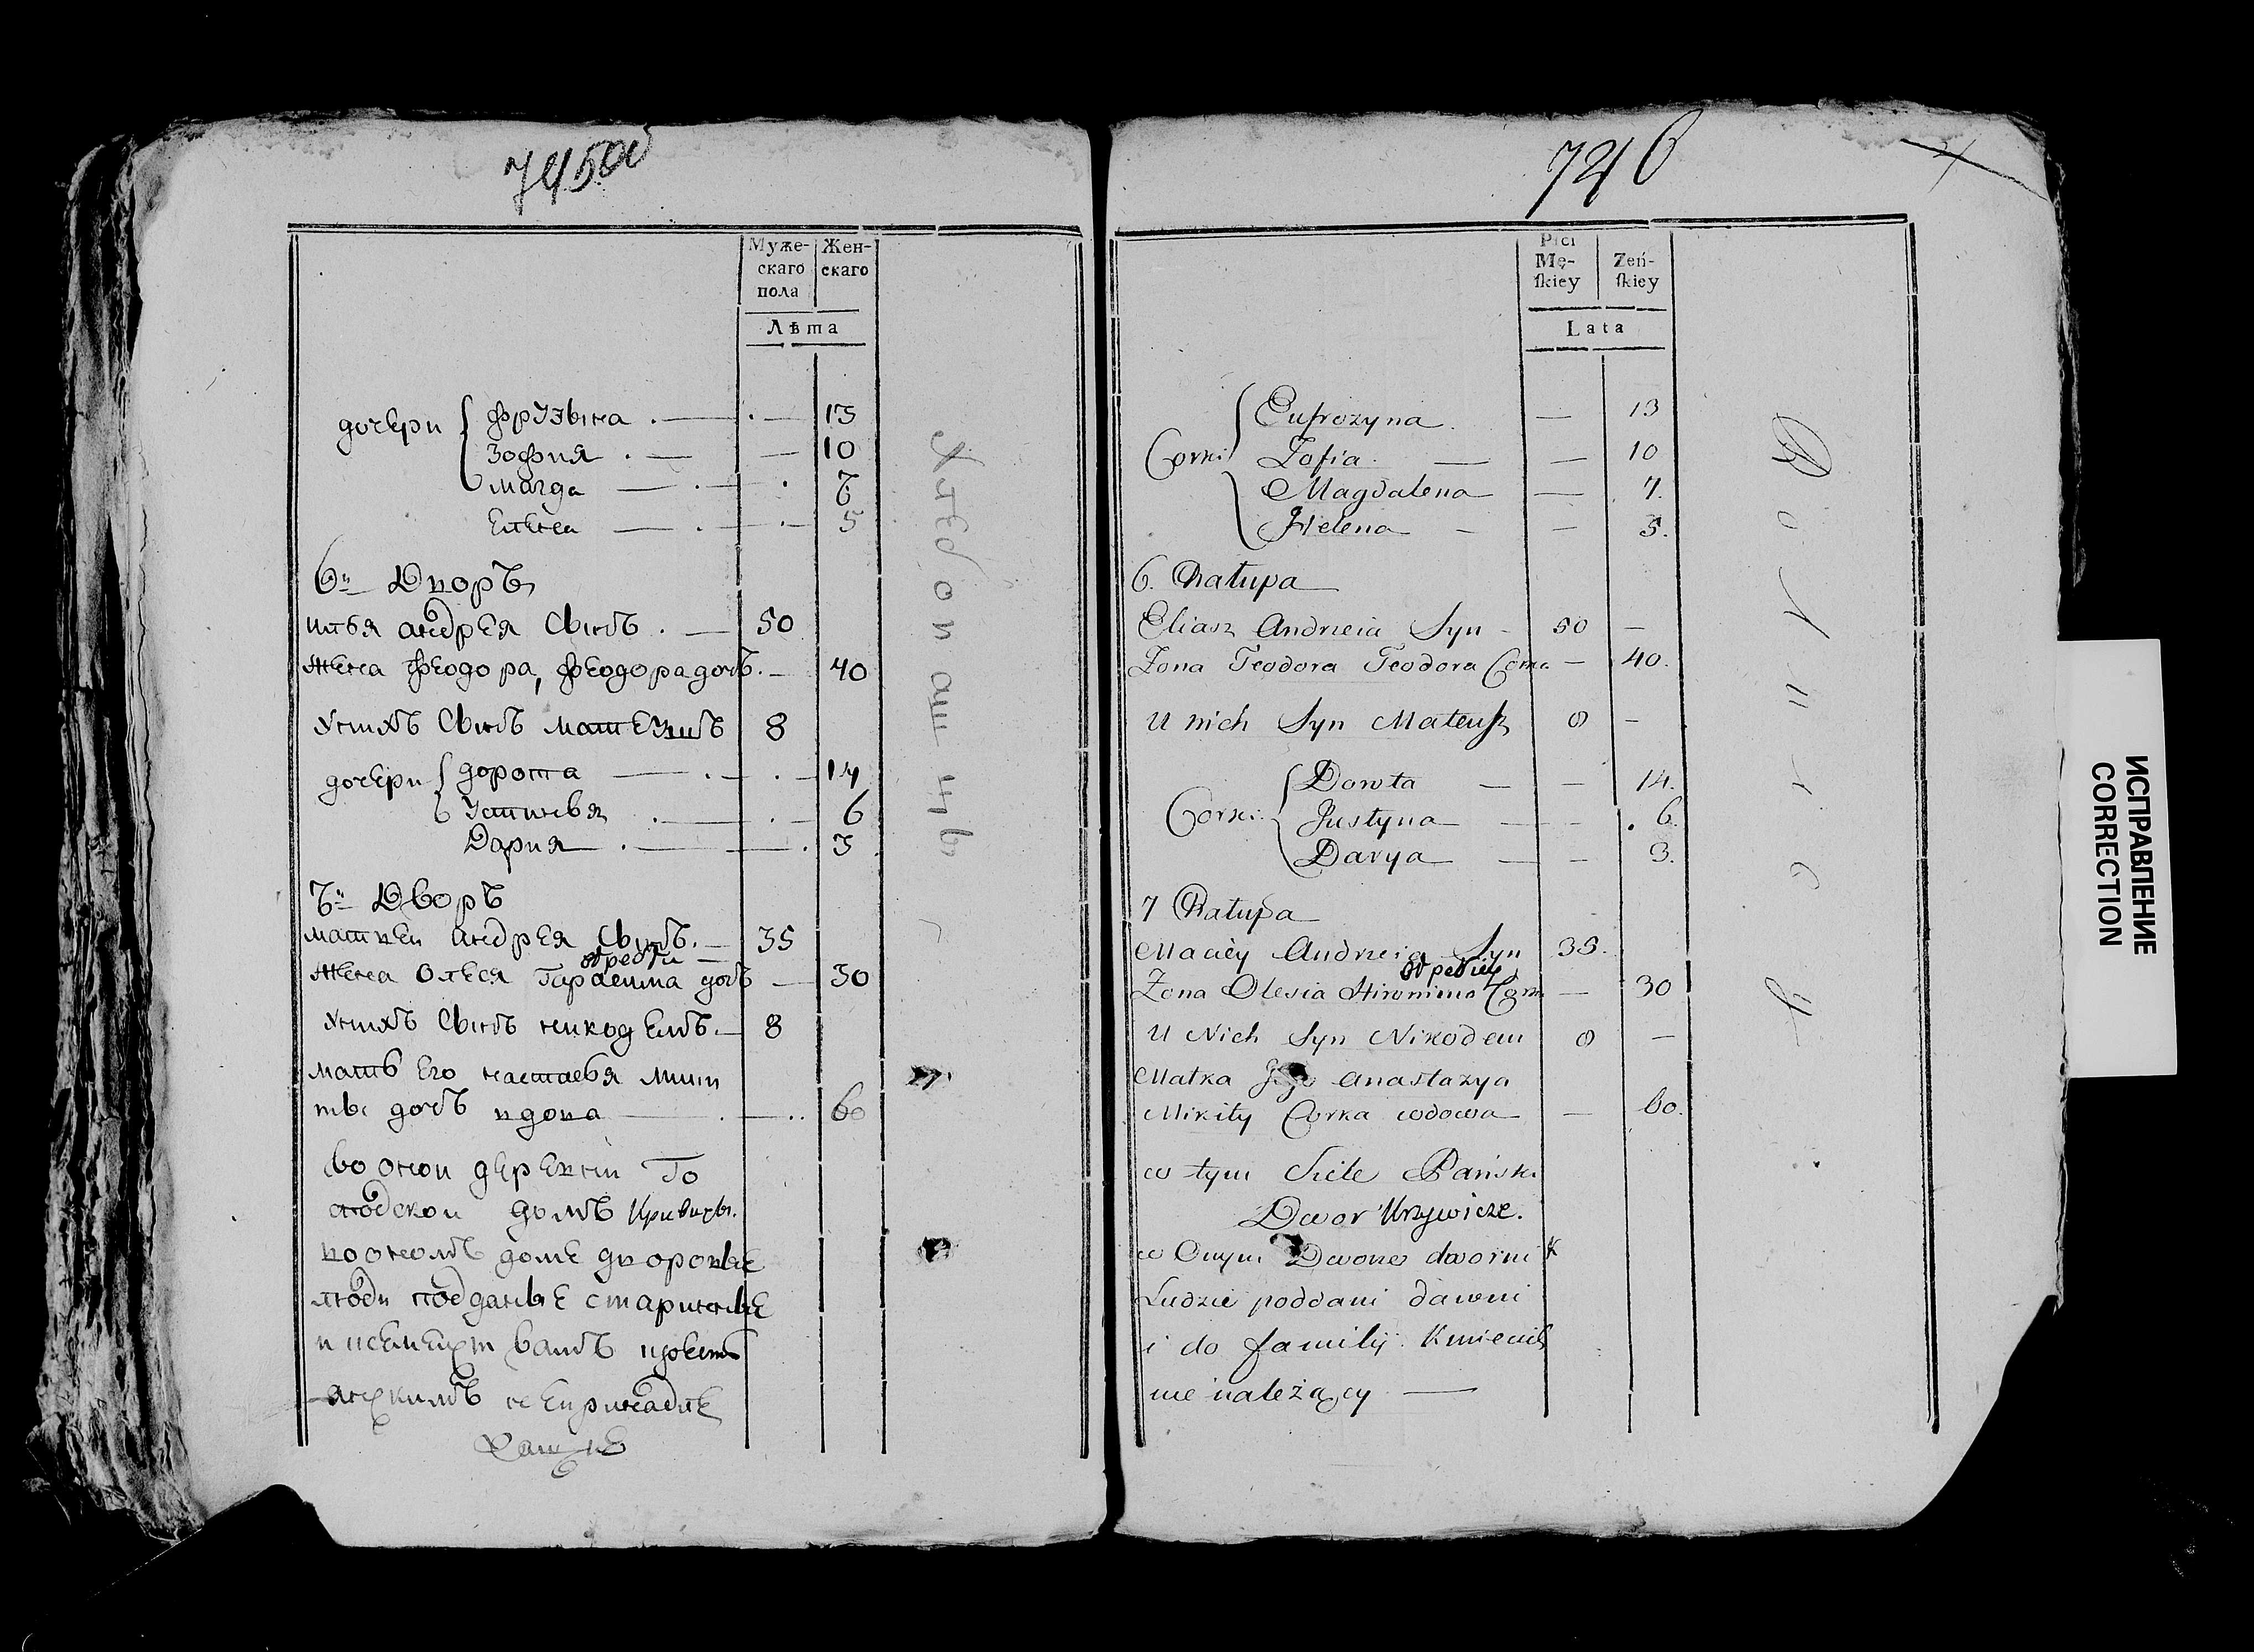 745об
Муже-
скаго
пола
Жен-
скаго
Лѣта
дочери
Фрузына 13
Зофия 10
Магда 7
Елена 5
6й Дворъ
Илья андрея Сынъ. 50
Жена Феодора, Феодора дочъ. 40
Унихъ Сынъ матеушъ 8
дочери
дорота 14
Устинья 6
Дария 3
7й Дворъ
матвеи андрея Сынъ. 35
Жена Олеся дочъ 30
Унихъ Сынъ никодемъ. 8
мать Его настасья мики
ты дочъ вдова 60
Во онои деревни Го
сподскои домъ Кривичы.
во ономъ доме дворовые
люди подданые старинные
Хлебопашцы
746
Płci
Mę-
ſkiey
Zeń-
ſkiey
Lata
Corki
Eufrozyna 13
Zofia 10
Magdalena 7.
Helena 5.
6. Chałupa
Eliasz Andrzeia Syn 50
Zona Teodora Teodora Corka 40.
U nich Syn Mateusz 8
Corki
Dorota 14.
Justyna 6.
Darya 3.
7 Chałupa
Maciey Andrzeia Syn 35.
Zona Olesia Hironima Corka 30
U Nich Syn Nikodem 8
Matka Jego Anastazya
Mikity Corka wdowa 60.
w tym Siele Pański
Dwor Krzywicze.
w Onym Dworze dworni
Ludzie poddani dawni
i do familij Kmieciey
nie należący
Rolnicy
ИСПРАВЛЕНИЕ
CORRECTION